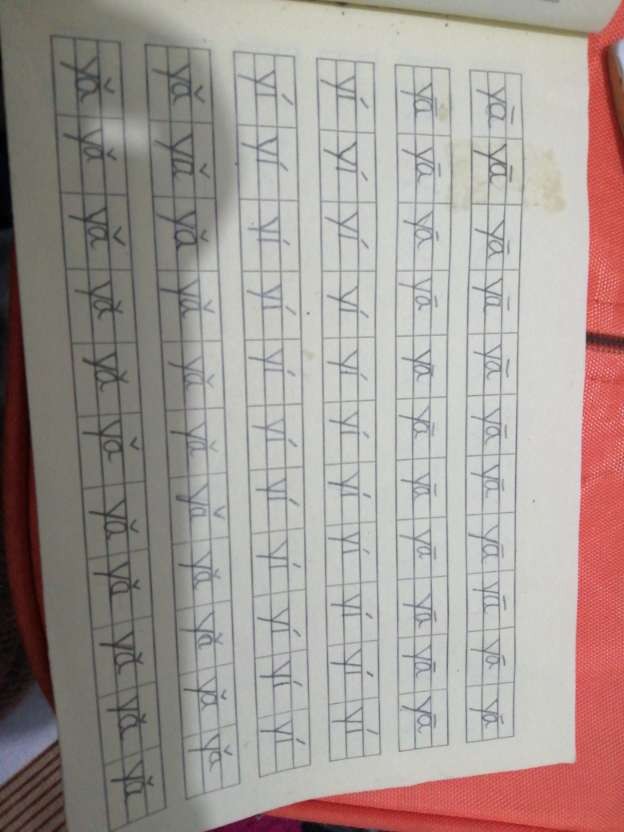 yā yā yā yā yā yā yā yā yā yā yā
yā yā yā yā yā yā yā yā yā yā yā
yí yí yí yí yí yí yí yí yí yí yí
yí yí yí yí yí yí yí yí yí yí yí
yǎ yǎ yǎ yǎ yǎ yǎ yǎ yǎ yǎ yǎ yǎ
yǎ yǎ yǎ yǎ yǎ yǎ yǎ yǎ yǎ yǎ yǎ